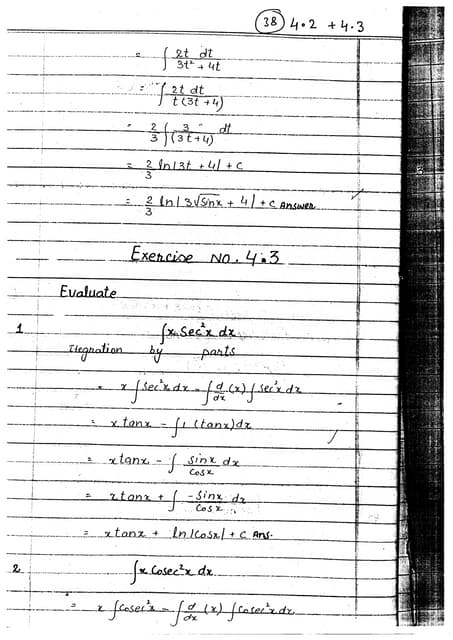 38 4.2 + 4.3
= ∫ 2t dt / 3t² + 4t
= ∫ 2t dt / t(3t + 4)
= 2/3 ∫ 3 / (3t + 4) dt
= 2/3 ln |3t + 4| + c
= 2/3 ln |3√sinx + 4| + c Answer
Exercise No. 4.3
Evaluate
1 ∫x Sec²x dx
Itegration by parts
= x ∫ sec²x dx - ∫ d/dx (x) ∫ sec²x dx
= x tanx - ∫1 (tanx) dx
= x tanx - ∫ sinx / cosx dx
= x tanx + ∫ -sinx / cosx dx
= x tanx + ln |cosx| + c Ans.
2 ∫x Cosec²x dx
= x ∫cosec²x - ∫ d/dx (x) ∫cosec²x dx